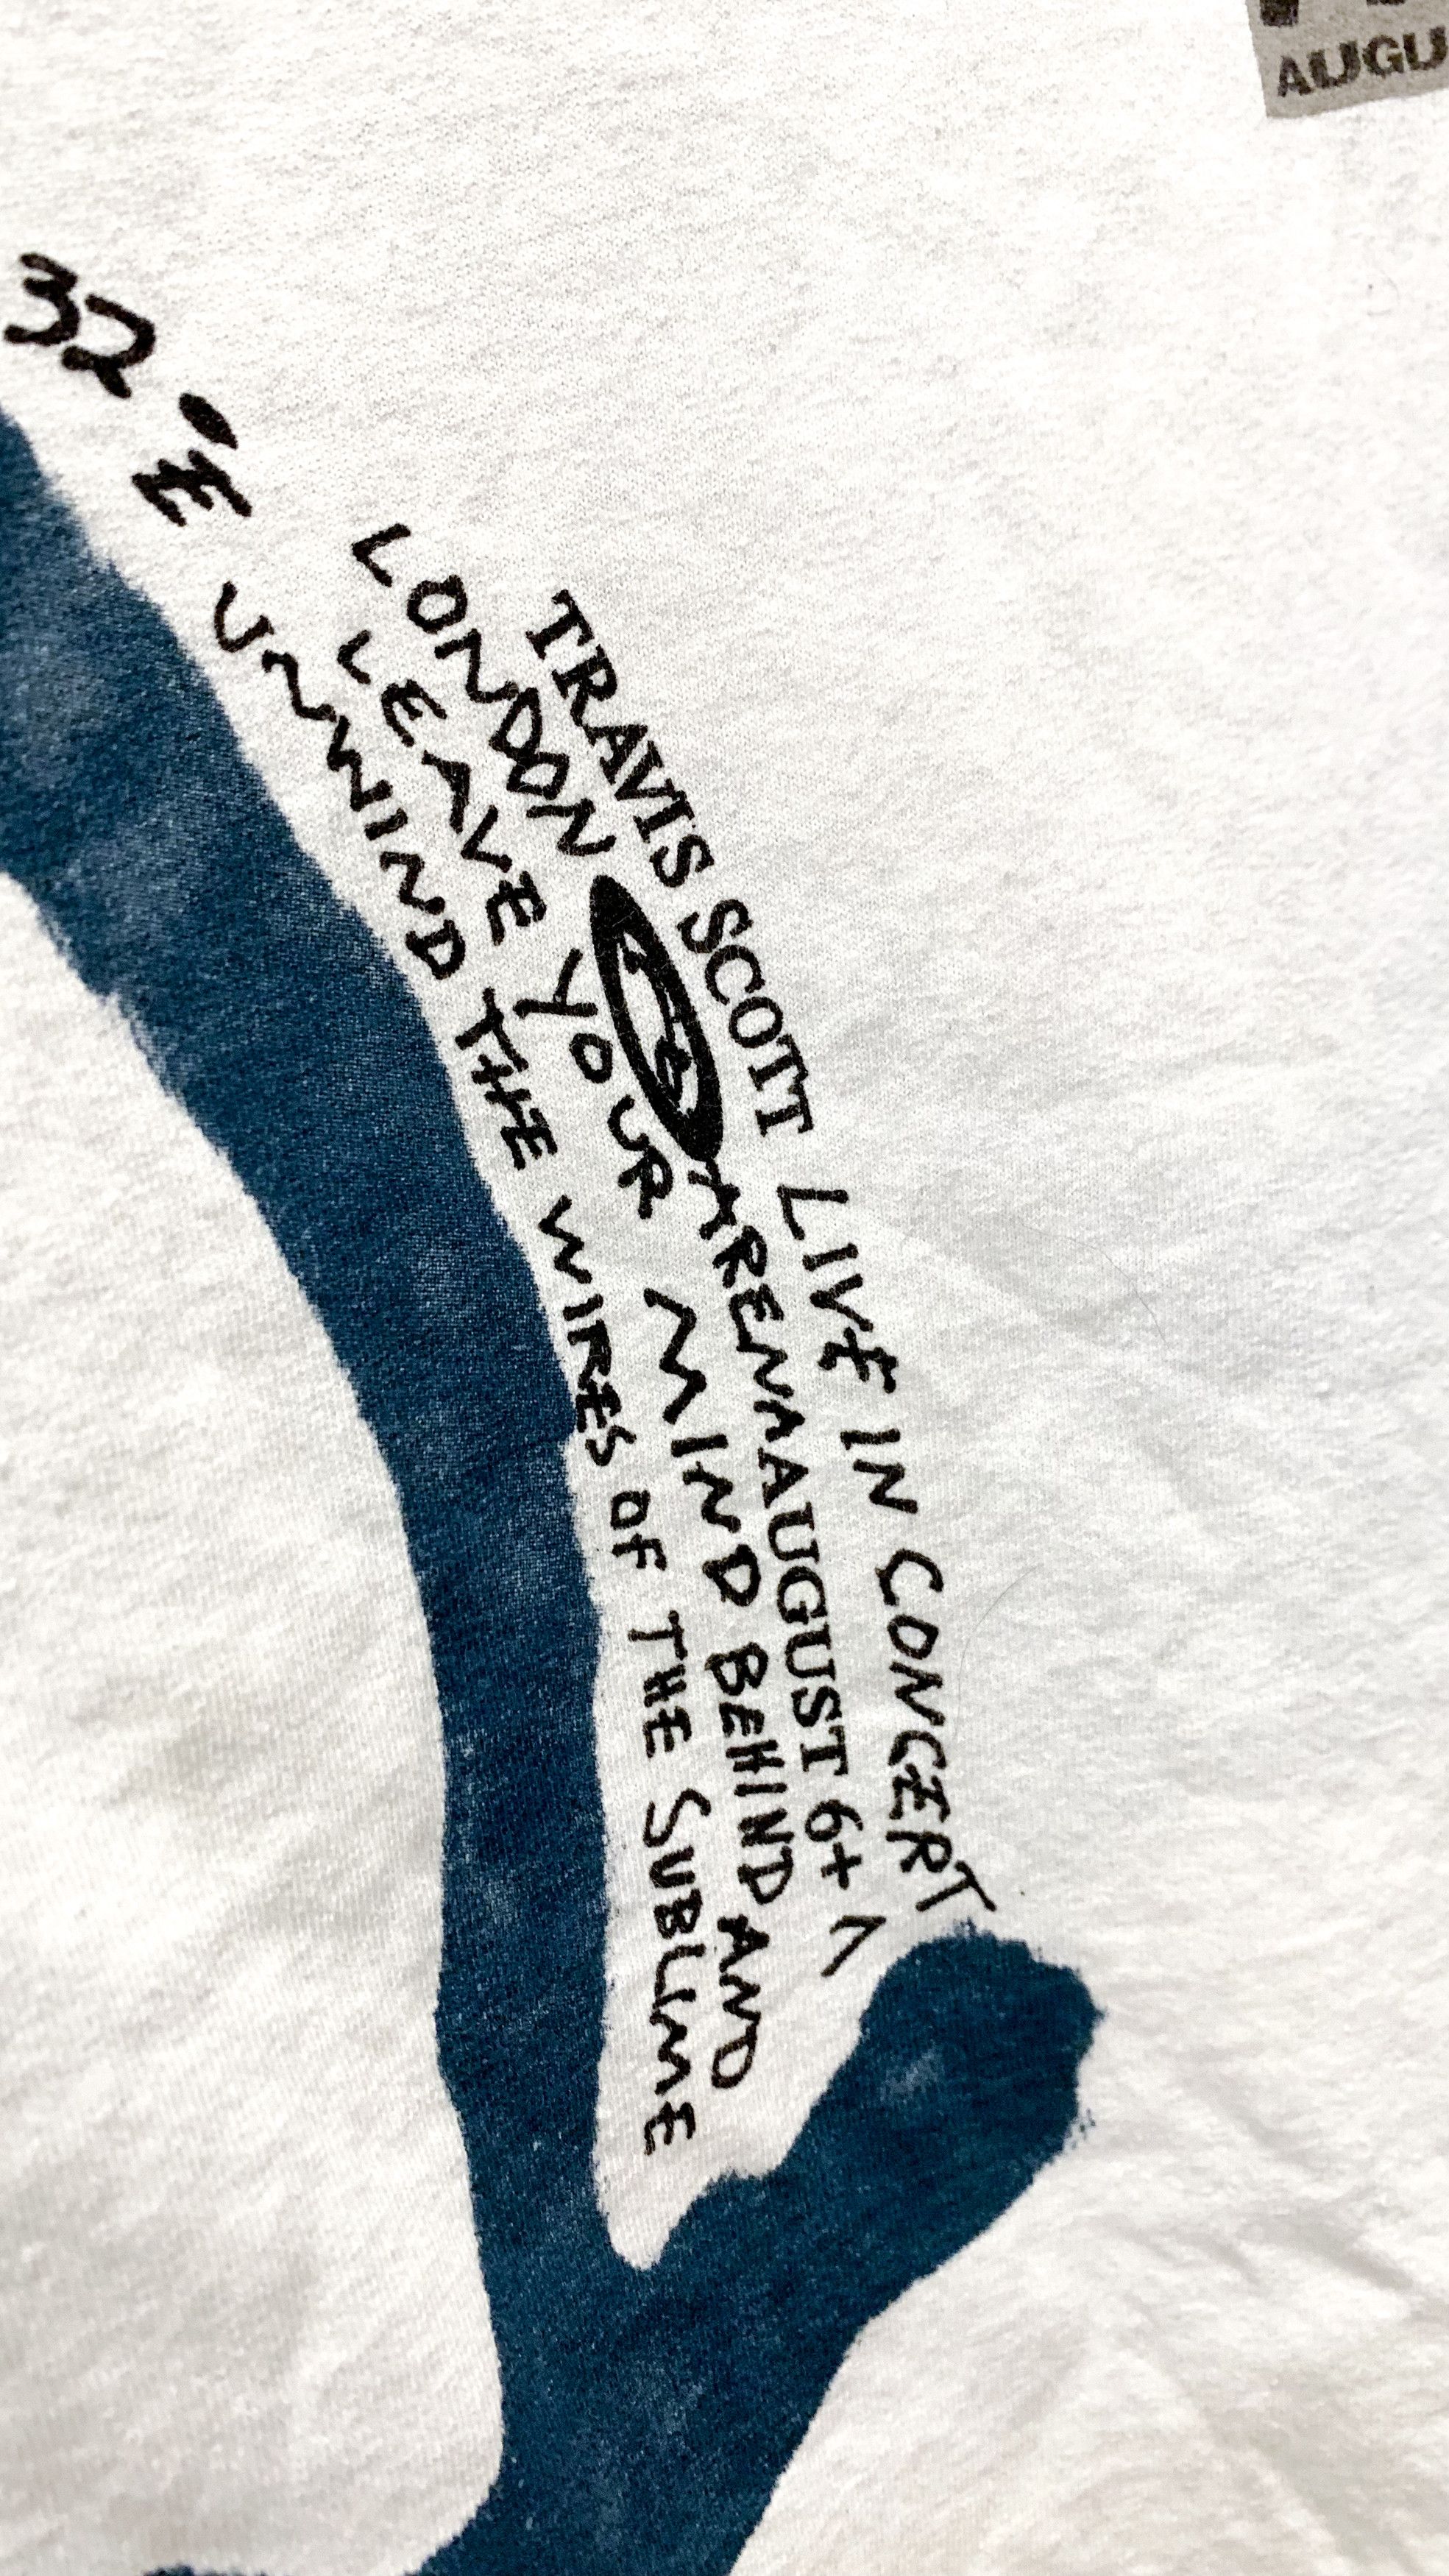 AUGU
32°E
TRAVIS SCOTT LIVE IN CONCERT
LONDON ARENA AUGUST 6+
LEAVE YOUR MIND BEHIND AND
UNWIND THE WIRES OF THE SUBLIME